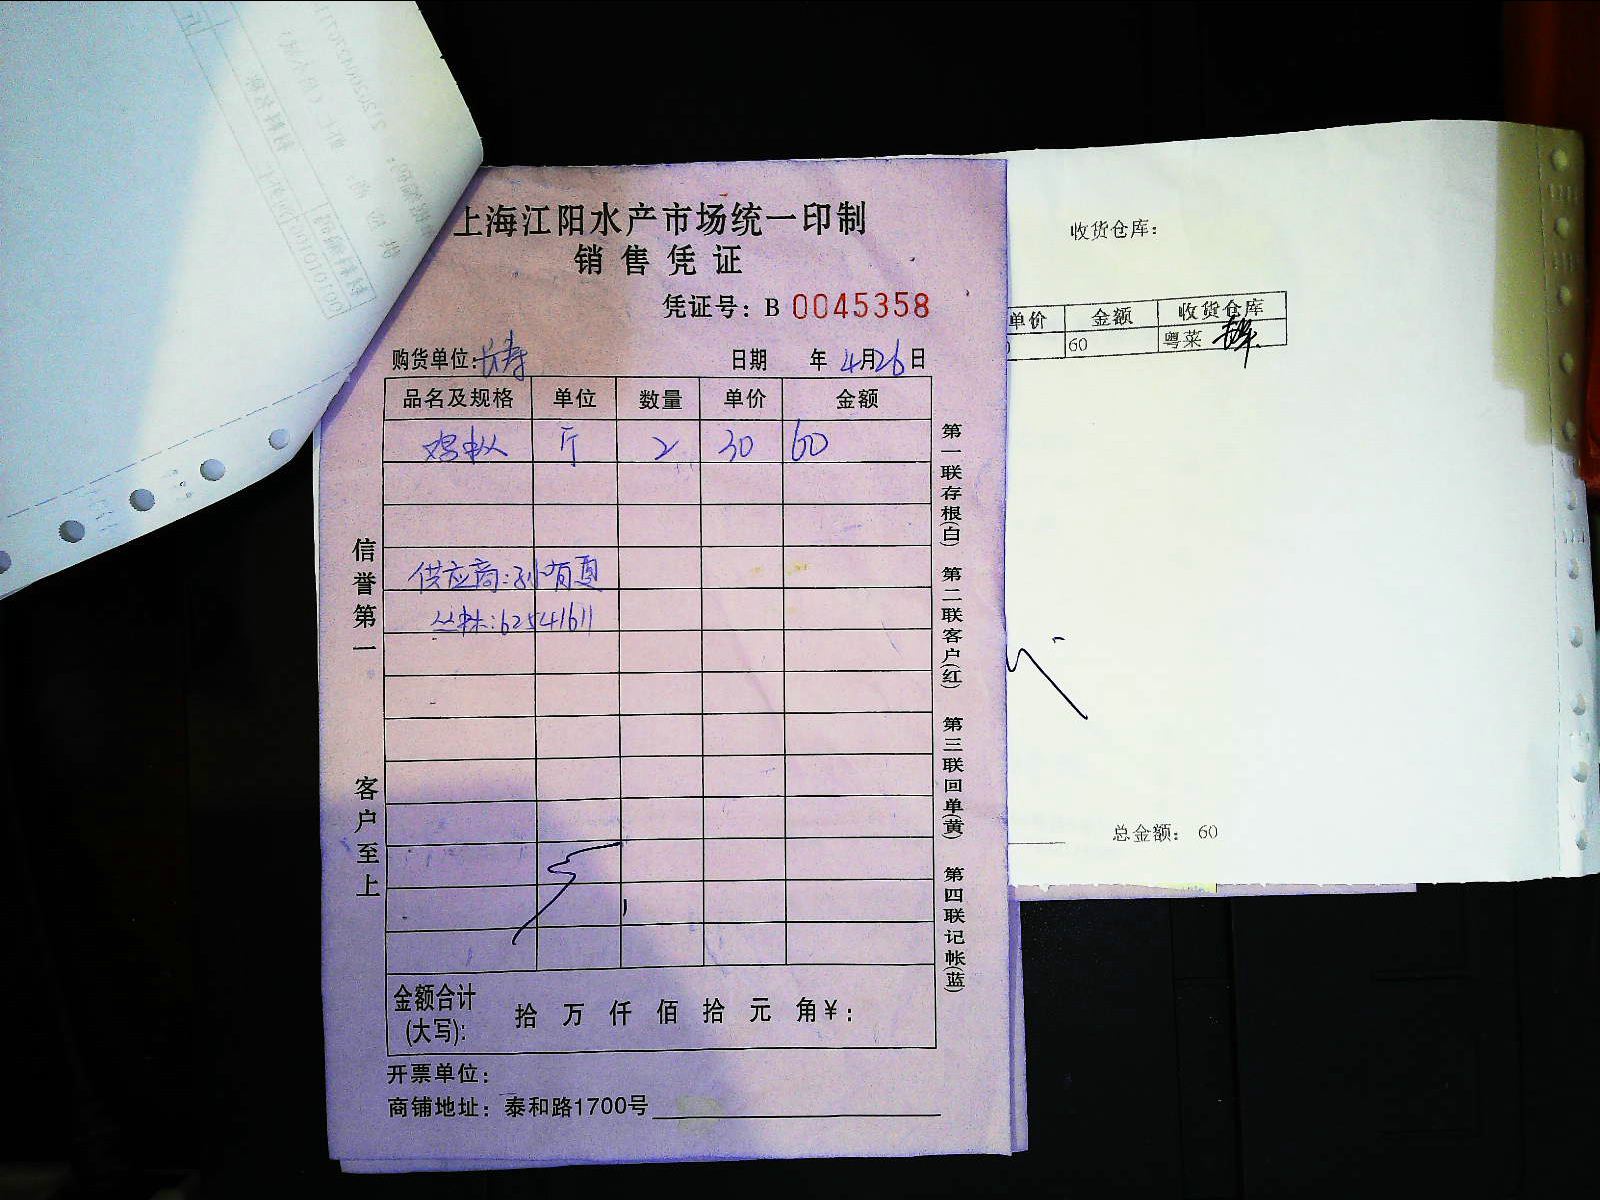 上海江阳水产市场统一印制
销售凭证
凭证号：B 0045358
购货单位：长寿 日期 年 4月26日
品名及规格 单位 数量 单价 金额
斤 2 30 60
供应商：孙有夏
62541611
金额合计(大写)： 拾 万 仟 佰 拾 元 角 ¥：
开票单位：
商铺地址：泰和路1700号
信誉第一
客户至上
第一联存根(白)
第二联客户(红)
第三联回单(黄)
第四联记帐(蓝)
收货仓库：
单价 金额 收货仓库
60 粤菜
总金额： 60